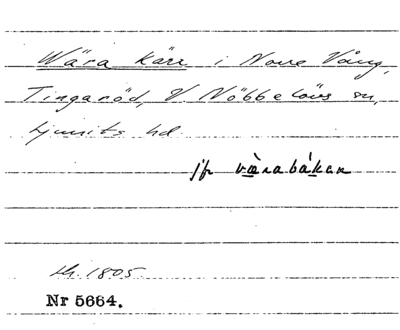 Wära Kärr i Norre Vång,
Tingaröd, V Nöbbelövs sn,
Ljunits hd.
jfr værabákan
Kh. 1805.
Nr 5664.